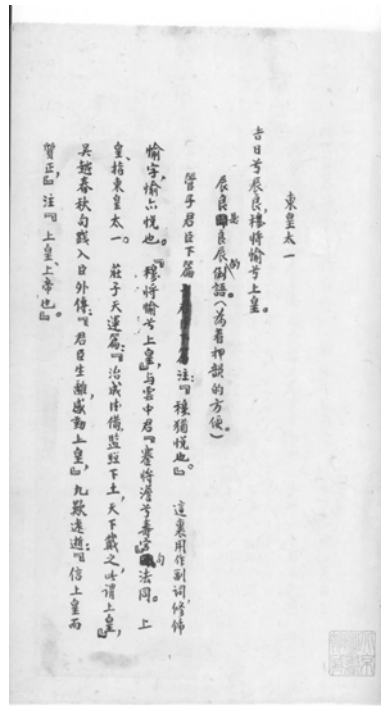 東皇太一
吉日兮辰良，穆將愉兮上皇。
辰良是良辰的倒語（為着押韻的方便。）
管子君臣下篇注：『穆猶悅也。』　這裏用作副詞，修飾
愉字，愉亦悅也。『穆將愉兮上皇』與雲中君『蹇將澹兮壽宮』句法同。　上
皇，指東皇太一。　莊子天運篇：『治成德備，監照下土，天下戴之，此謂上皇』，
吳越春秋句踐入臣外傳：『君臣生離，感動上皇』，九歎遠逝：『信上皇而
質正』，注『上皇，上帝也。』